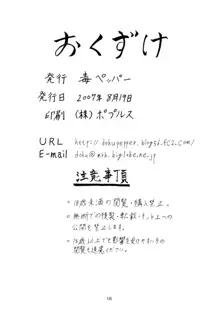 おくずけ
発行 毒ペッパー
発行日 2007年8月19日
印刷 (株)ポプルス
URL http://dokupepper.blog56.FC2.com/
E-mail doku@mrh.biglobe.ne.jp
注意事項
。18歳未満の閲覧・購入禁止。
。無断での複製・転載・ネット上への公開を禁止します。
。18歳以上でも影響を受けやすい方の閲覧も遠慮ください。